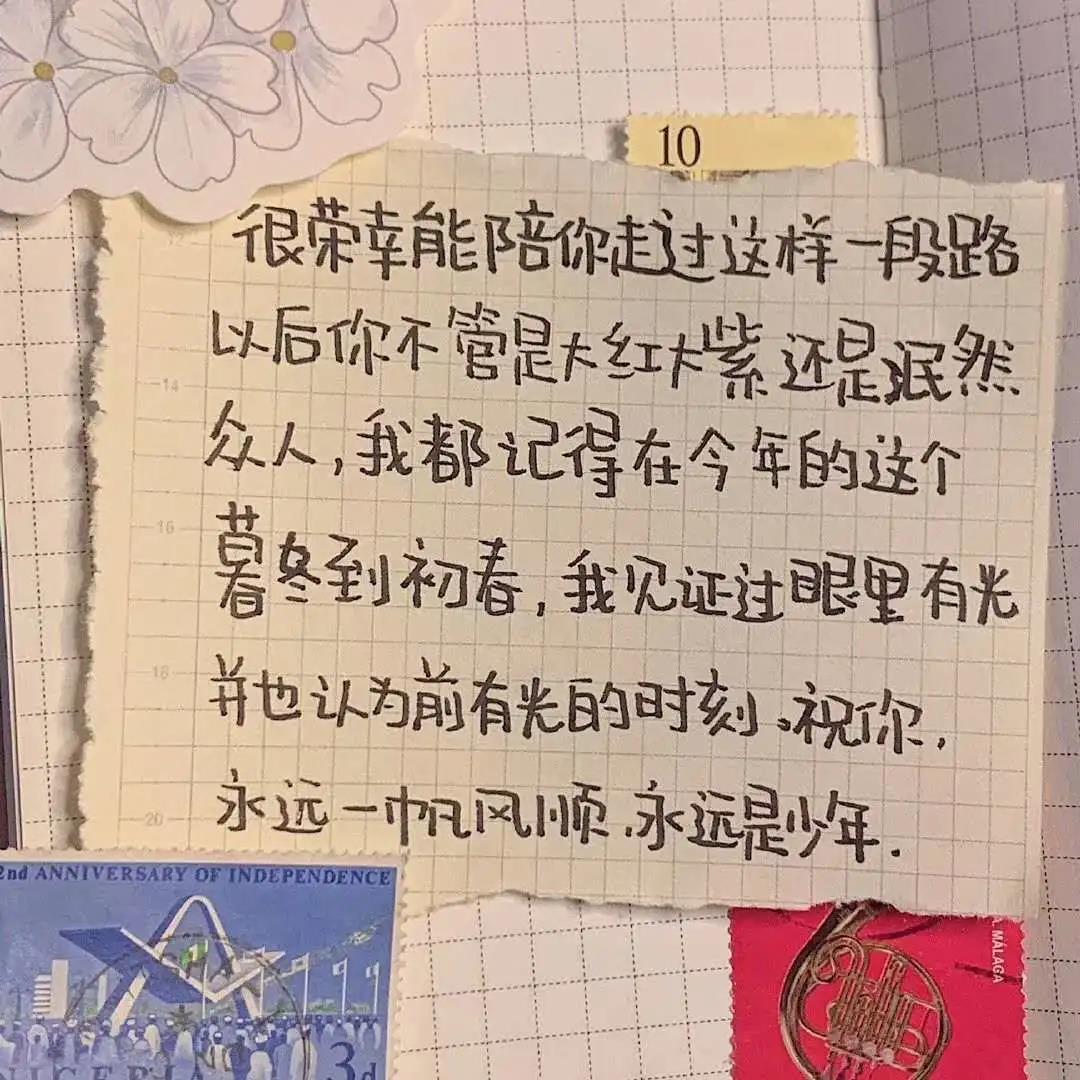 10
很荣幸能陪你走过这样一段路
以后你不管是大红大紫还是泯然
众人,我都记得在今年的这个
暮冬到初春,我见证过眼里有光
并也认为前有光的时刻、祝你,
永远一帆风顺、永远是少年.
14
16
18
20
2nd ANNIVERSARY OF INDEPENDENCE
NIGERIA
3d
MÁLAGA